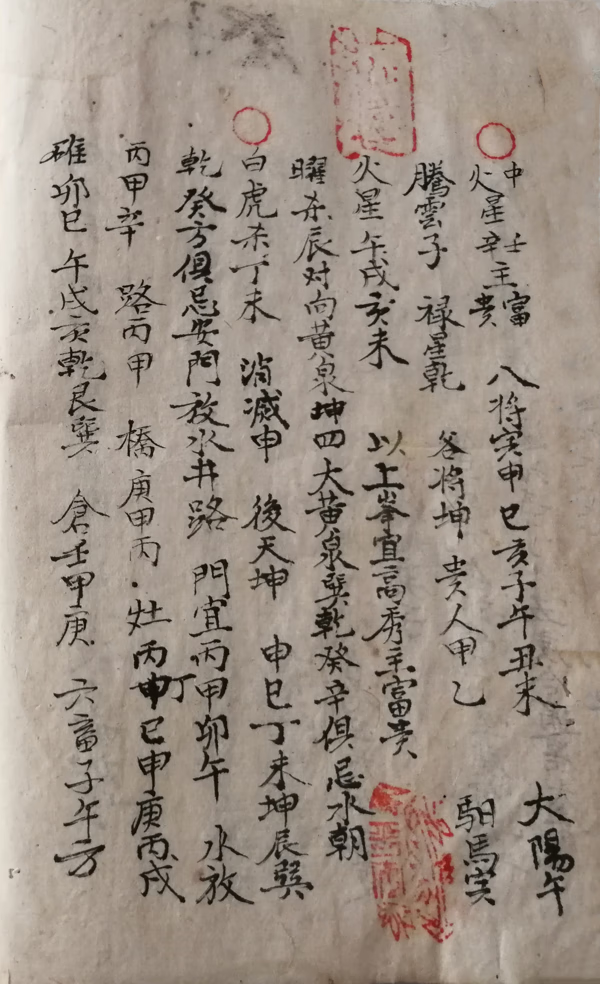 中火星辛壬主富貴 八将寅申巳亥子午丑未 大陽午
騰雲子 禄星乾 各将坤 貴人甲乙 馹馬寅
火星午戌亥未 以上峯宜高秀主富貴
曜杀辰对向黄泉坤四大黄泉巽乾癸辛俱忌水朝
白虎杀丁未 消滅申 後天坤 申巳丁未坤辰巽
乾癸方俱忌安門放水井路 門宜丙甲卯午 水放
丙甲辛 路丙甲 橋庚甲丙 灶丙丁巳申庚丙戌
碓卯巳午戌亥乾艮巽 倉壬甲庚 六畜子午方